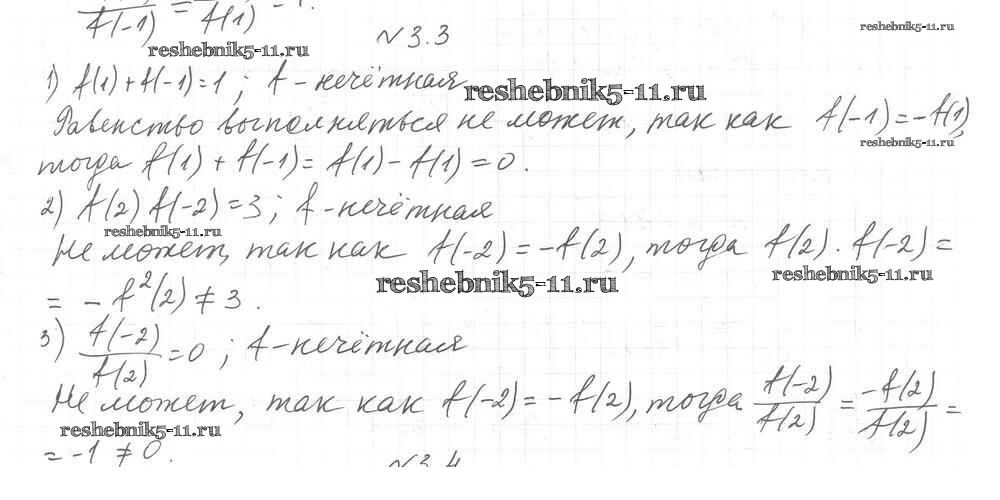 f(-1) = f(1) = -1.
reshebnik5-11.ru
№3.3
reshebnik5-11.ru
1) f(1)+f(-1)=1; f - нечётная
reshebnik5-11.ru
Равенство выполняться не может, так как f(-1)=-f(1),
reshebnik5-11.ru
тогда f(1)+f(-1)=f(1)-f(1)=0.
2) f(2) f(-2)=3; f - нечётная
reshebnik5-11.ru
Не может, так как f(-2)=-f(2), тогда f(2)·f(-2)=
reshebnik5-11.ru
reshebnik5-11.ru
= -f²(2) ≠ 3.
3) f(-2)/f(2) = 0; f - нечётная
Не может, так как f(-2)=-f(2), тогда f(-2)/f(2) = -f(2)/f(2) =
reshebnik5-11.ru
= -1 ≠ 0.
№3.4